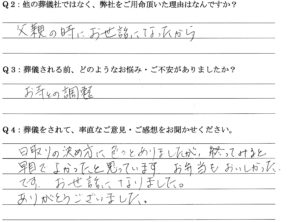 Q2:他の葬儀社ではなく、弊社をご用命頂いた理由はなんですか?
父親の時にお世話になったから
Q3:葬儀される前、どのようなお悩み・ご不安がありましたか?
お寺との調整
Q4:葬儀をされて、率直なご意見・ご感想をお聞かせください。
日取りの決め方に色々とありましたが、終ってみると
早目でよかったと思っています お弁当もおいしかった
です。お世話になりました。
ありがとうございました。